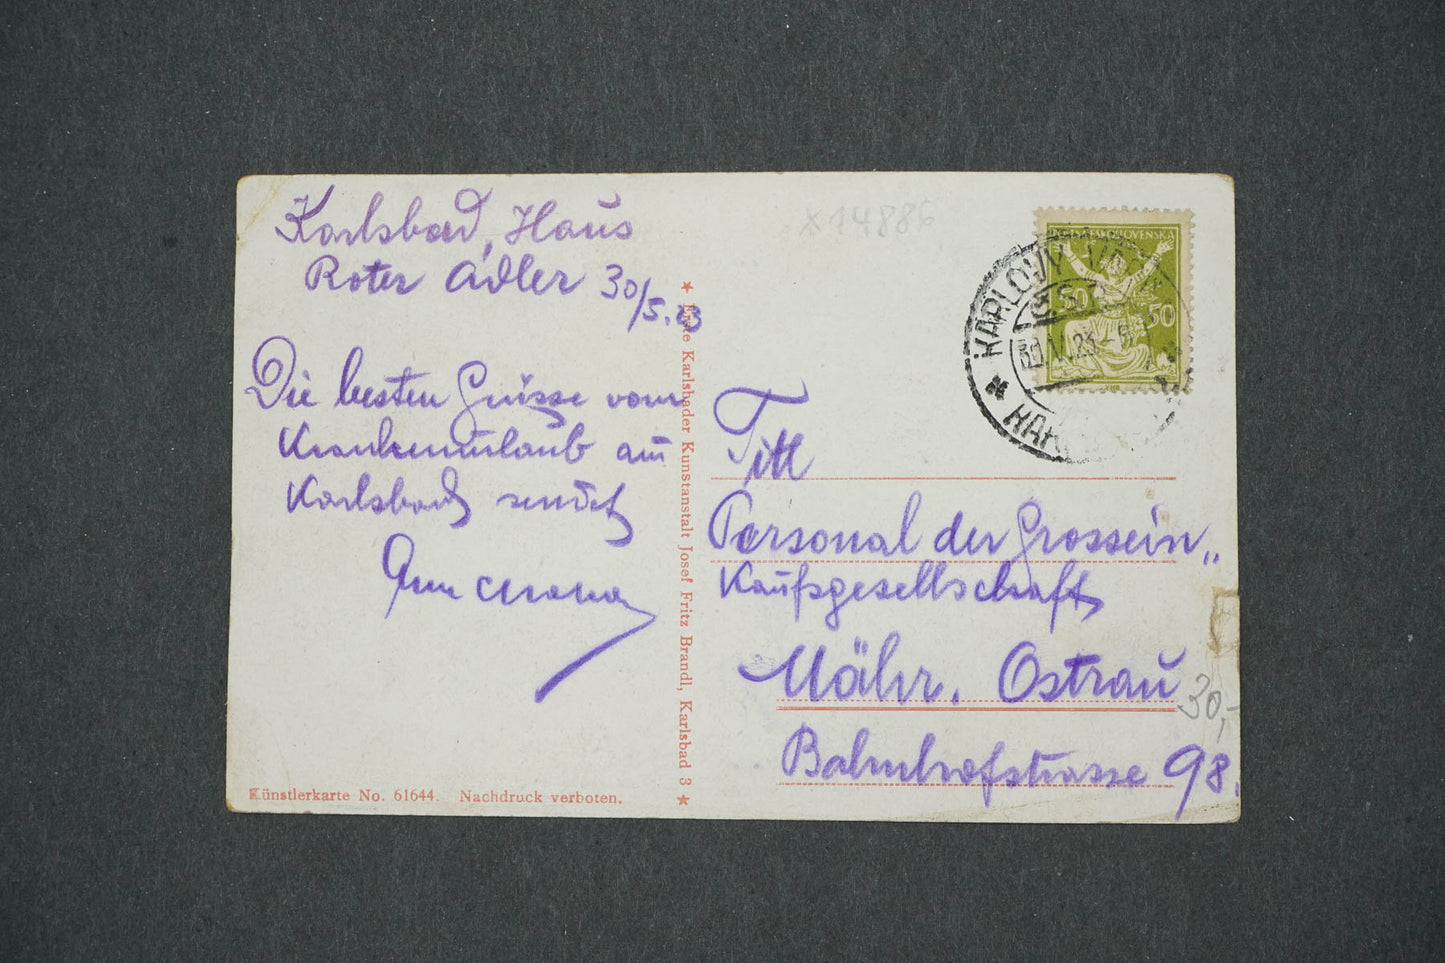 Karlsbad, Haus
Roter Adler 30/5.23
Die besten Grüsse vom
Krankenurlaub aus
Karlsbad sendet
x14886
ČESKOSLOVENSKÁ
50 50
KARLOVY VARY
Titl
Personal der Grossein„
Kaufsgesellschaft
Mähr. Ostrau
30,-
Bahnhofstrasse 98.
★ Erste Karlsbader Kunstanstalt Josef Fritz Brandl, Karlsbad 3 ★
Künstlerkarte No. 61644. Nachdruck verboten.